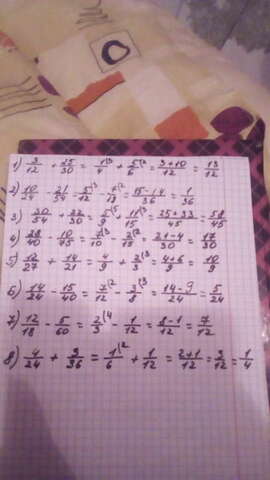 1) 3/12 + 25/30 = 1/4(3 + 5/6(2 = 3+10/12 = 13/12
2) 10/24 - 21/54 = 5/12(3 - 7/18(2 = 15-14/36 = 1/36
3) 30/54 + 22/30 = 5/9(5 + 11/15(3 = 25+33/45 = 58/45
4) 28/40 - 10/75 = 7/10(3 - 2/15(2 = 21-4/30 = 17/30
5) 12/27 + 14/21 = 4/9 + 2/3(3 = 4+6/9 = 10/9
6) 14/24 - 15/40 = 7/12(2 - 3/8(3 = 14-9/24 = 5/24
7) 12/18 - 5/60 = 2/3(4 - 1/12 = 8-1/12 = 7/12
8) 4/24 + 3/36 = 1/6(2 + 1/12 = 2+1/12 = 3/12 = 1/4